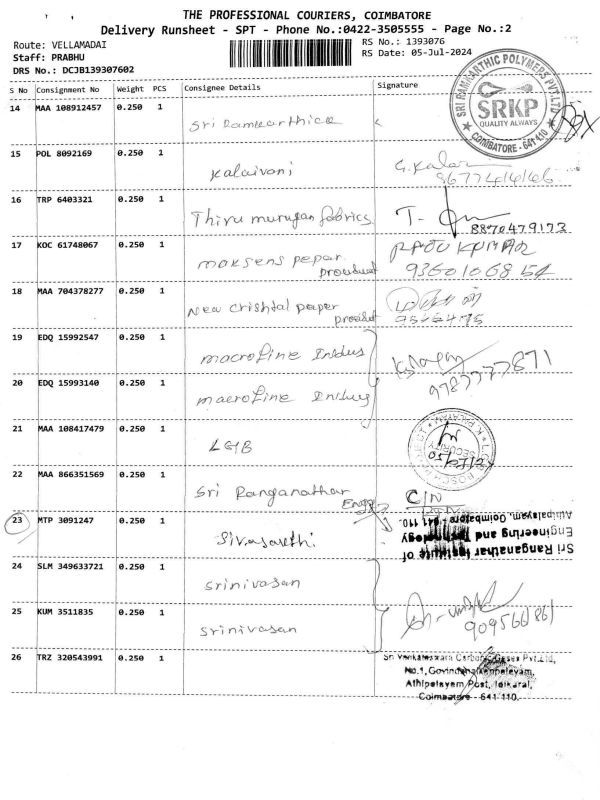 THE PROFESSIONAL COURIERS, COIMBATORE
Delivery Runsheet - SPT - Phone No.:0422-3505555 - Page No.:2
Route: VELLAMADAI
RS No.: 1393076
Staff: PRABHU
RS Date: 05-Jul-2024
DRS No.: DCJB139307602
S No Consignment No Weight PCS Consignee Details Signature
SRI RAMKARTHIC POLYMERS PVT.LTD
SRKP
QUALITY ALWAYS
COIMBATORE - 641 110
14 MAA 108912457 0.250 1 Sri Ramkarthice
15 POL 8092169 0.250 1 Kalaivani G. Kalai
16 TRP 6403321 0.250 1 Thiru murugan fabrics T.
8870479173
17 KOC 61748067 0.250 1 maksens peper RAJU KUMAR
prouduct
18 MAA 704378277 0.250 1 New crishtal paper
produt
19 EDQ 15992547 0.250 1 macrofine Indus
9787777871
20 EDQ 15993140 0.250 1 macrofine Indus
21 MAA 108417479 0.250 1 LGB
SECURITY
22 MAA 866351569 0.250 1 Sri Ranganathar
Engg
23 MTP 3091247 0.250 1 Sivasakthi
Sri Ranganathar Institute of
Engineering and Technology
Athipalayam, Coimbatore - 641 110.
24 SLM 349633721 0.250 1 srinivasan
25 KUM 3511835 0.250 1 srinivasan
26 TRZ 320543991 0.250 1 Sri Venkateswara Carbonic Gases Pvt.Ltd,
Athipalayam Post,
Coimbatore - 641 110.